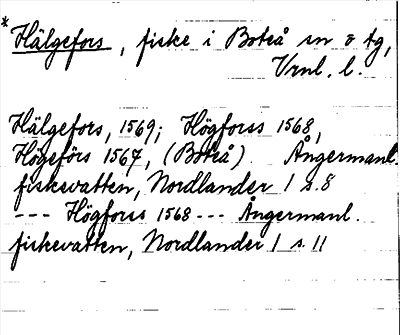 * Hälgefors, fiske i Boteå sn o tg,
Vrnl. l.
Hälgefors, 1569; Högforss 1568,
Högeförs 1567, (Boteå) Ångermanl.
fiskevatten, Nordlander 1 s. 8
--- Högforss 1568 --- Ångermanl.
fiskevatten, Nordlander 1 s. 11